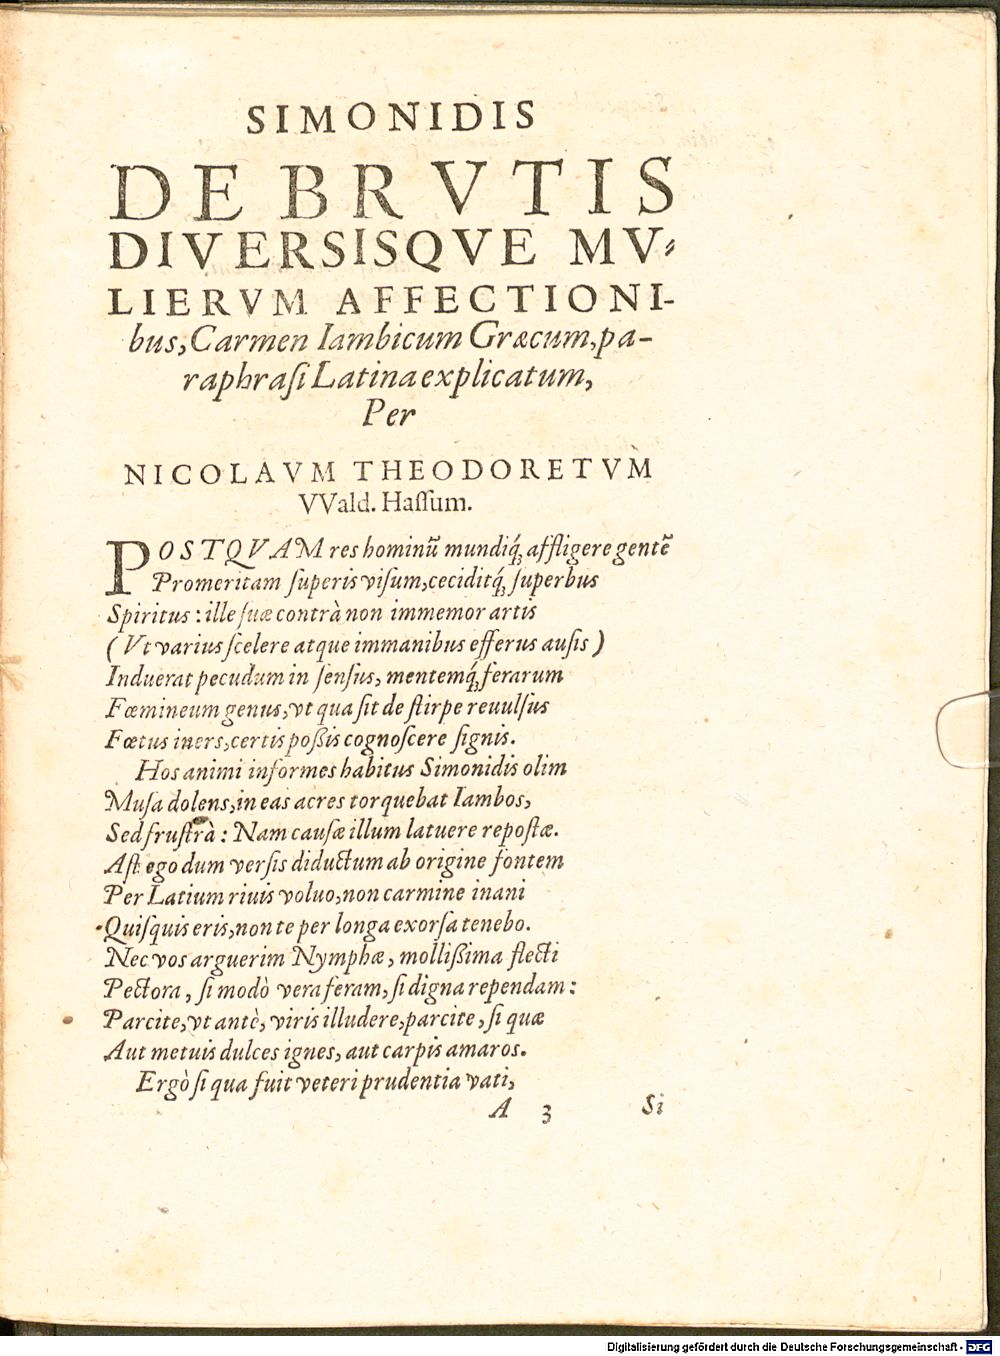 SIMONIDIS
DE BRVTIS
DIVERSISQVE MV-
LIERVM AFFECTIONI-
bus, Carmen Iambicum Græcum, pa-
raphraſi Latina explicatum,
Per
NICOLAVM THEODORETVM
VVald. Haſſum.
POSTQVAM res hominū mundiq́; affligere gentē
Promeritam ſuperis viſum, ceciditq́; ſuperbus
Spiritus: ille ſuæ contrà non immemor artis
(Vt varius ſcelere atque immanibus efferus auſis)
Induerat pecudum in ſenſus, mentemq́; ferarum
Fœmineum genus, vt qua ſit de ſtirpe reuulſus
Fœtus iners, certis poßis cognoſcere ſignis.
Hos animi informes habitus Simonidis olim
Muſa dolens, in eas acres torquebat Iambos,
Sed fruſtrà: Nam cauſæ illum latuere repoſtæ.
Aſt ego dum verſis diductum ab origine fontem
Per Latium riuis voluo, non carmine inani
Quiſquis eris, non te per longa exorſa tenebo.
Nec vos arguerim Nymphæ, mollißima flecti
Pectora, ſi modò vera feram, ſi digna rependam:
Parcite, vt antè, viris illudere, parcite, ſi quæ
Aut metuis dulces ignes, aut carpis amaros.
Ergò ſi qua fuit veteri prudentia vati,
A 3 Si
Digitalisierung gefördert durch die Deutsche Forschungsgemeinschaft - DFG